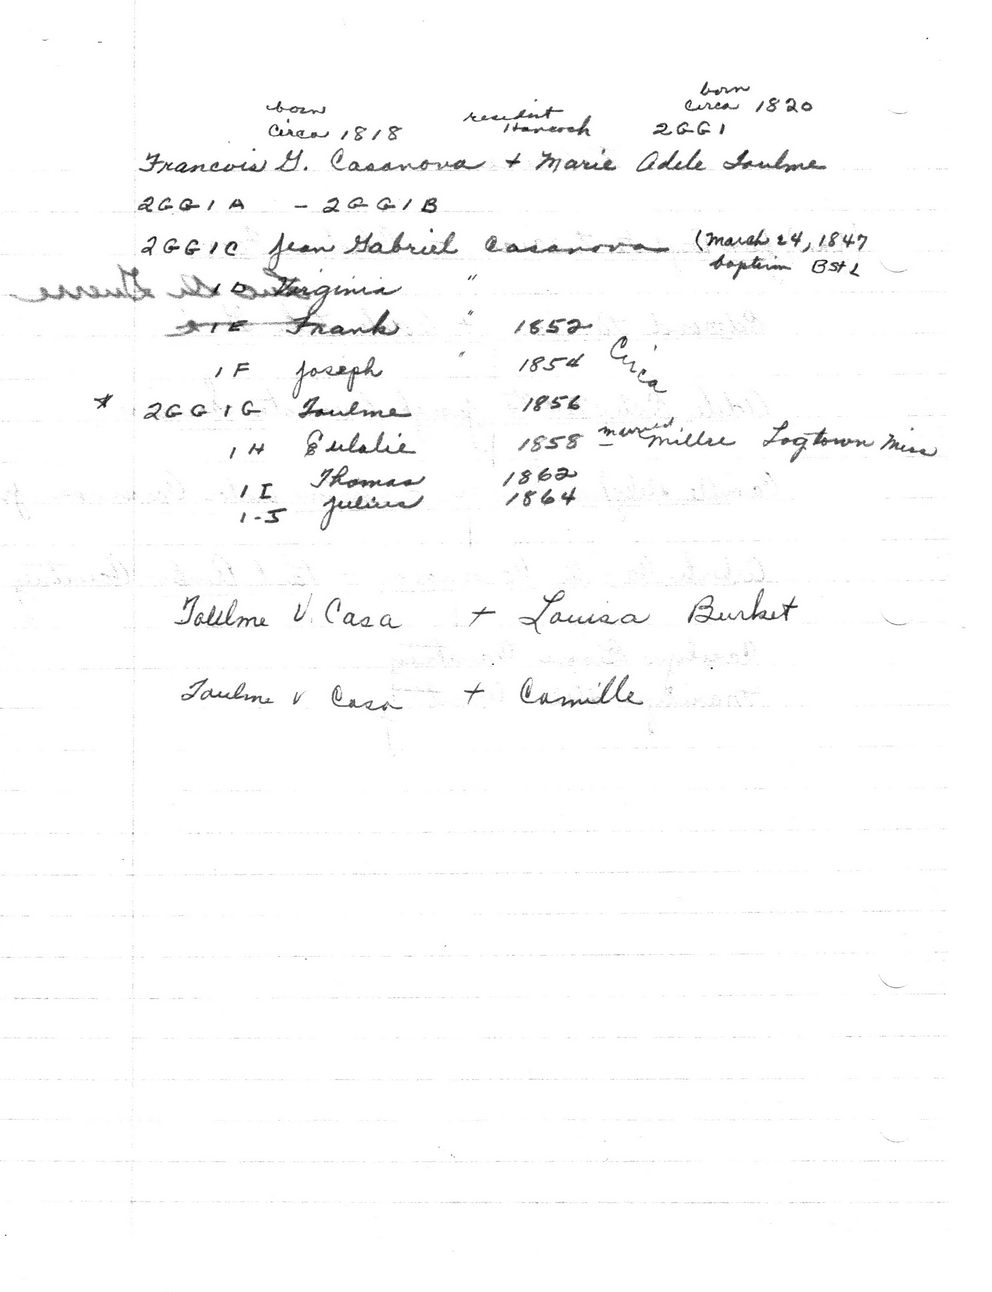 born
circa 1818
resident
Hancock
born
circa 1820
2GG1
Francois G. Casanova + Marie Adele Toulme
2GG1A - 2GG1B
2GG1C Jean Gabriel Casanova (March 24, 1847
baptism BSt L
1D Virginia "
1E Frank " 1852
1F Joseph " 1854 Circa
* 2GG1G Toulme 1856
1H Eulalie 1858 married Miller Logtown Miss
1I Thomas 1862
1-J Julius 1864
Toulme V. Casa + Louisa Burket
Toulme V Casa + Camille